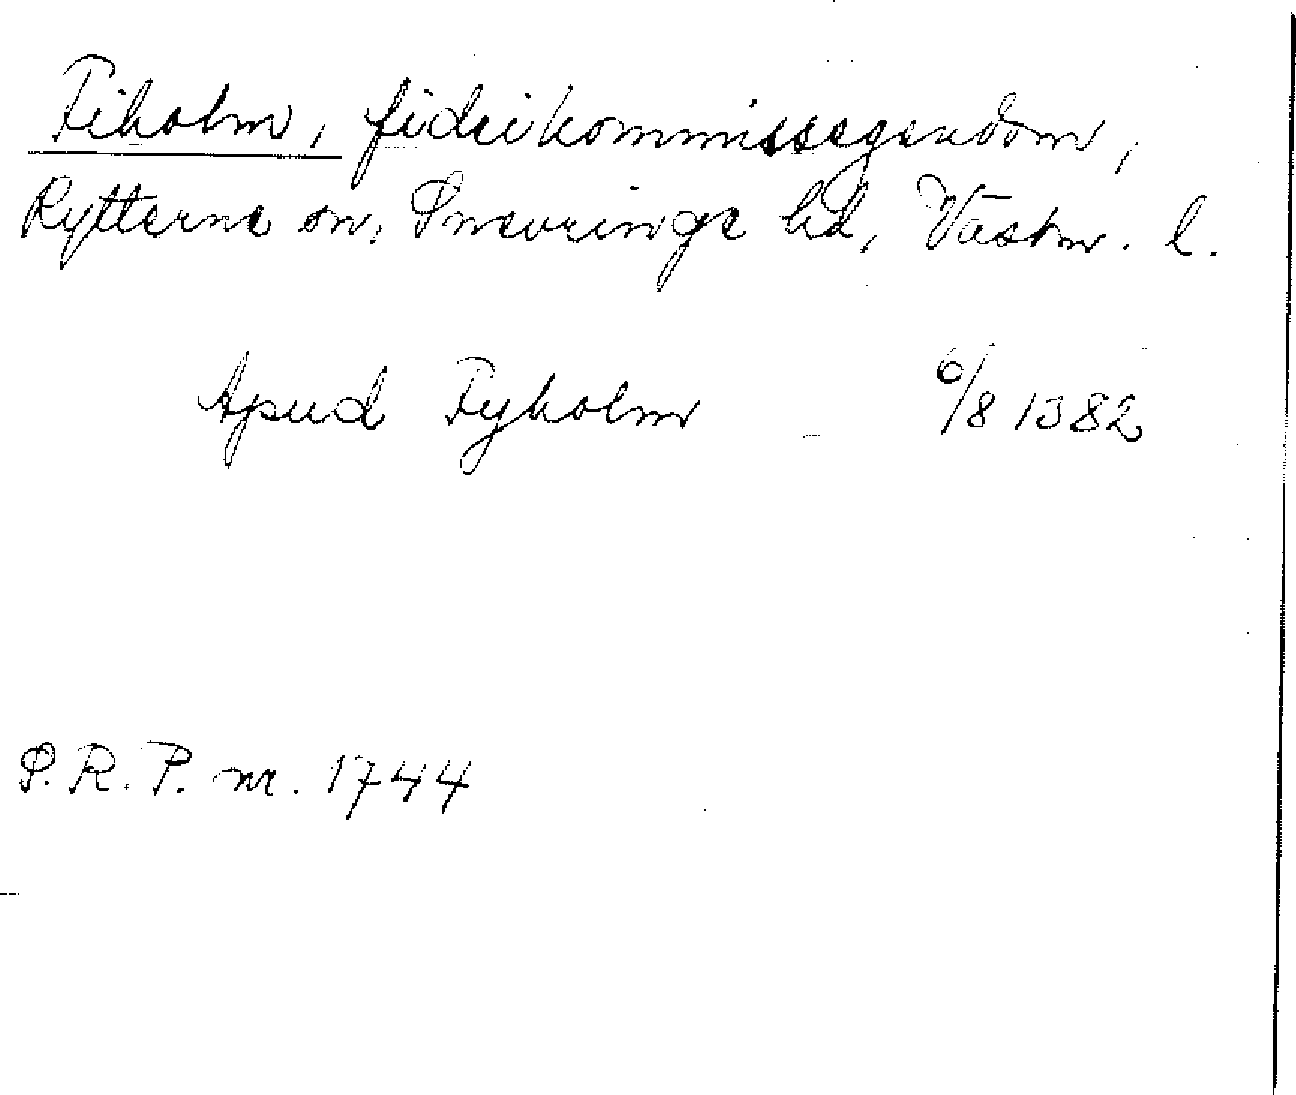 Tiholm, fideikommissegendom,
Rytterne sn, Snevringe hd, Västm. l.
Apud Tyholm 6/8 1382
S.R.P. nr. 1744